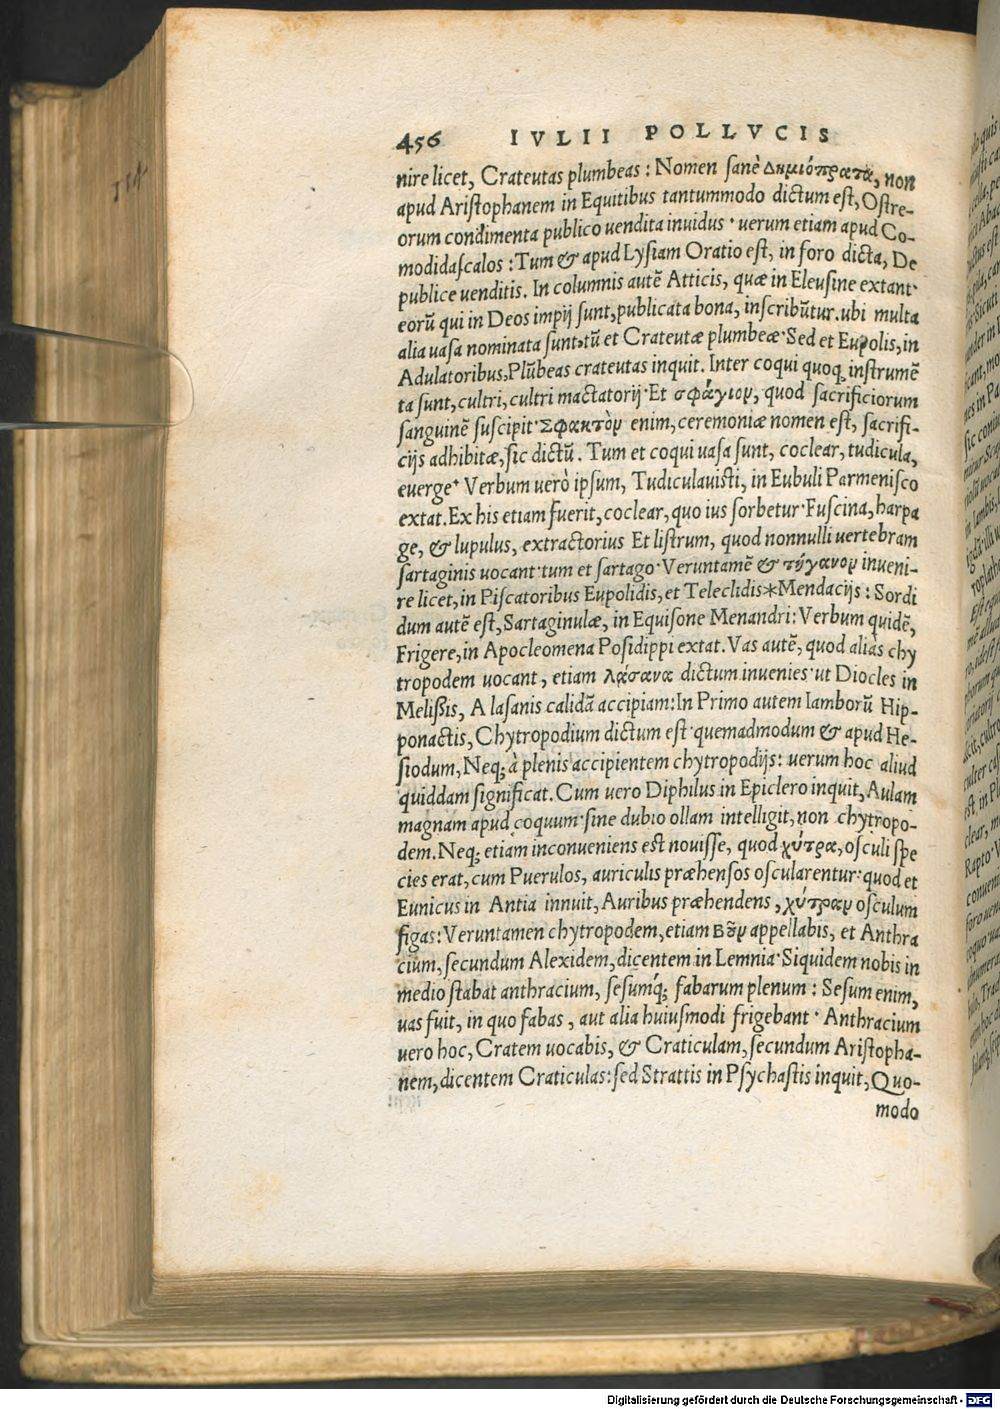 456 IVLII POLLVCIS
nire licet, Crateutas plumbeas: Nomen sanè Δημιόπρατα, non
apud Aristophanem in Equitibus tantummodo dictum est, Ostre-
orum condimenta publico uendita inuidus· uerum etiam apud Co-
modidascalos: Tum & apud Lysiam Oratio est, in foro dicta, De
publice uenditis. In columnis autē Atticis, quæ in Eleusine extant·
eorū qui in Deos impij sunt, publicata bona, inscribūtur. ubi multa
alia uasa nominata sunt, tū et Crateutæ plumbeæ· Sed et Eupolis, in
Adulatoribus, Plūbeas crateutas inquit. Inter coqui quoq; instrumē
ta sunt, cultri, cultri mactatorij· Et σφάγιον, quod sacrificiorum
sanguinē suscipit· Σφακτὸν enim, ceremoniæ nomen est, sacrifi-
cijs adhibitæ, sic dictū. Tum et coqui uasa sunt, coclear, tudicula,
euerge· Verbum uerò ipsum, Tudiculauisti, in Eubuli Parmenisco
extat. Ex his etiam fuerit, coclear, quo ius sorbetur· Fuscina, harpa
ge, & lupulus, extractorius Et listrum, quod nonnulli uertebram
sartaginis uocant· tum et sartago· Veruntamē & τήγανον inueni-
re licet, in Piscatoribus Eupolidis, et Teleclidis*Mendacijs: Sordi
dum autē est, Sartaginulæ, in Equisone Menandri: Verbum quidē,
Frigere, in Apocleomena Posidippi extat. Vas autē, quod aliàs chy
tropodem uocant, etiam λάσανα dictum inuenies· ut Diocles in
Melißis, A lasanis calidā accipiam: In Primo autem Iamborū Hip-
ponactis, Chytropodium dictum est· quemadmodum & apud He-
siodum, Neq; à plenis accipientem chytropodijs: uerum hoc aliud
quiddam significat. Cum uero Diphilus in Epiclero inquit, Aulam
magnam apud coquum· sine dubio ollam intelligit, non chytropo-
dem. Neq; etiam inconueniens est nouisse, quod χύτρα, osculi spe
cies erat, cum Puerulos, auriculis præhensos oscularentur: quod et
Eunicus in Antia innuit, Auribus præhendens, χύτραν osculum
figas: Veruntamen chytropodem, etiam Βȣ̃ν appellabis, et Anthra
cium, secundum Alexidem, dicentem in Lemnia· Siquidem nobis in
medio stabat anthracium, sesumq́; fabarum plenum: Sesum enim,
uas fuit, in quo fabas, aut alia huiusmodi frigebant· Anthracium
uero hoc, Cratem uocabis, & Craticulam, secundum Aristopha-
nem, dicentem Craticulas: sed Strattis in Psychastis inquit, Quo-
modo
Digitalisierung gefördert durch die Deutsche Forschungsgemeinschaft - DFG